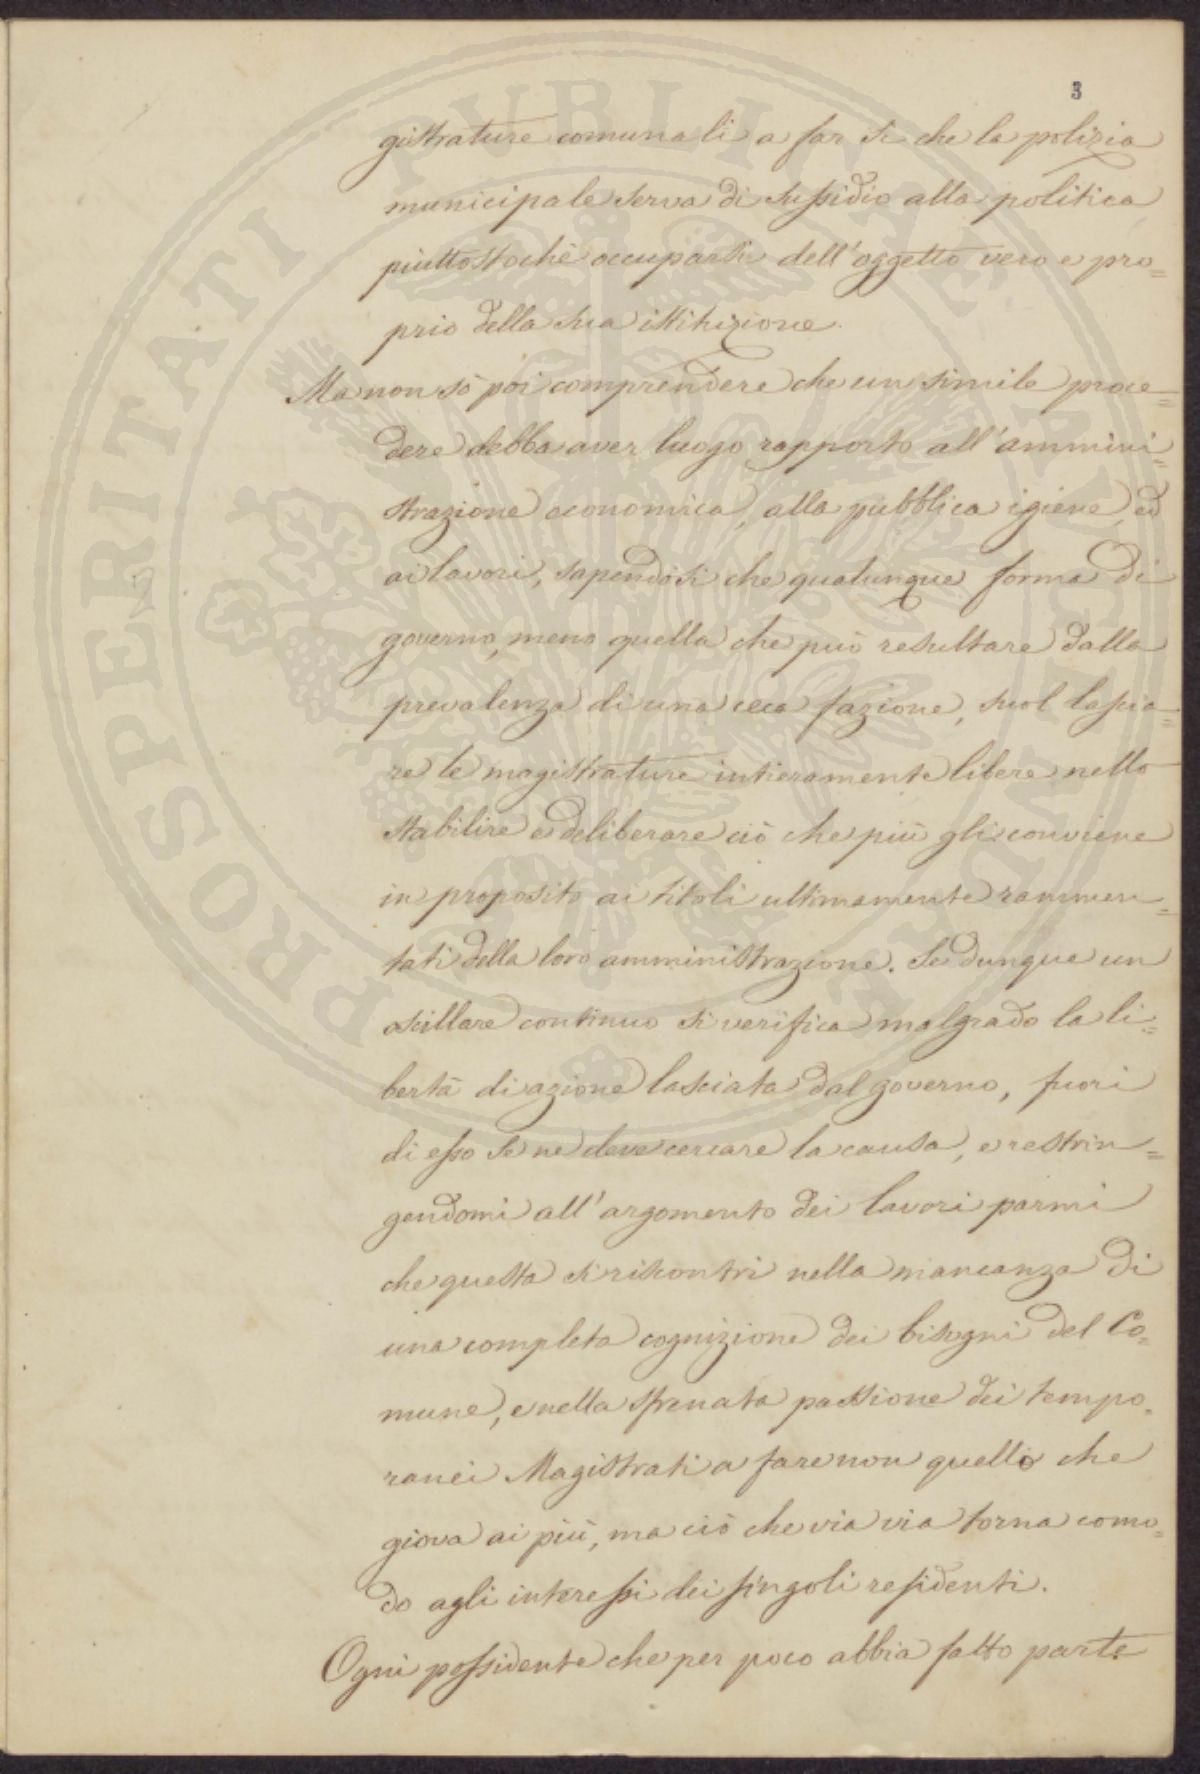 3
gistrature comunali a far sì che la polizia
municipale serva di sussidio alla politica
piuttostochè occuparsi dell'oggetto vero e pro=
prio della sua istituzione.
Ma non sò poi comprendere che un simile proce=
dere debba aver luogo rapporto all'ammini=
strazione economica, alla pubblica igiene, ed
ai lavori, sapendosi che qualunque forma di
governo, meno quella che può resultare dalla
prevalenza di una ceca fazione, suol lascia=
re le magistrature intieramente libere nello
stabilire e deliberare ciò che più gli conviene
in proposito ai titoli ultimamente rammen=
tati della loro amministrazione. Se dunque un
oscillare continuo si verifica malgrado la li=
bertà di azione lasciata dal governo, fuori
di esso se ne deve cercare la causa, e restrin=
gendomi all'argomento dei lavori parmi
che questa si riscontri nella mancanza di
una completa cognizione dei bisogni del Co=
mune, e nella sfrenata passione dei tempo=
ranei Magistrati a fare non quello che
giova ai più, ma ciò che via via torna como=
do agli interessi dei singoli residenti.
Ogni possidente che per poco abbia fatto parte
PROSPERITATI PUBLICAE AUGENDAE